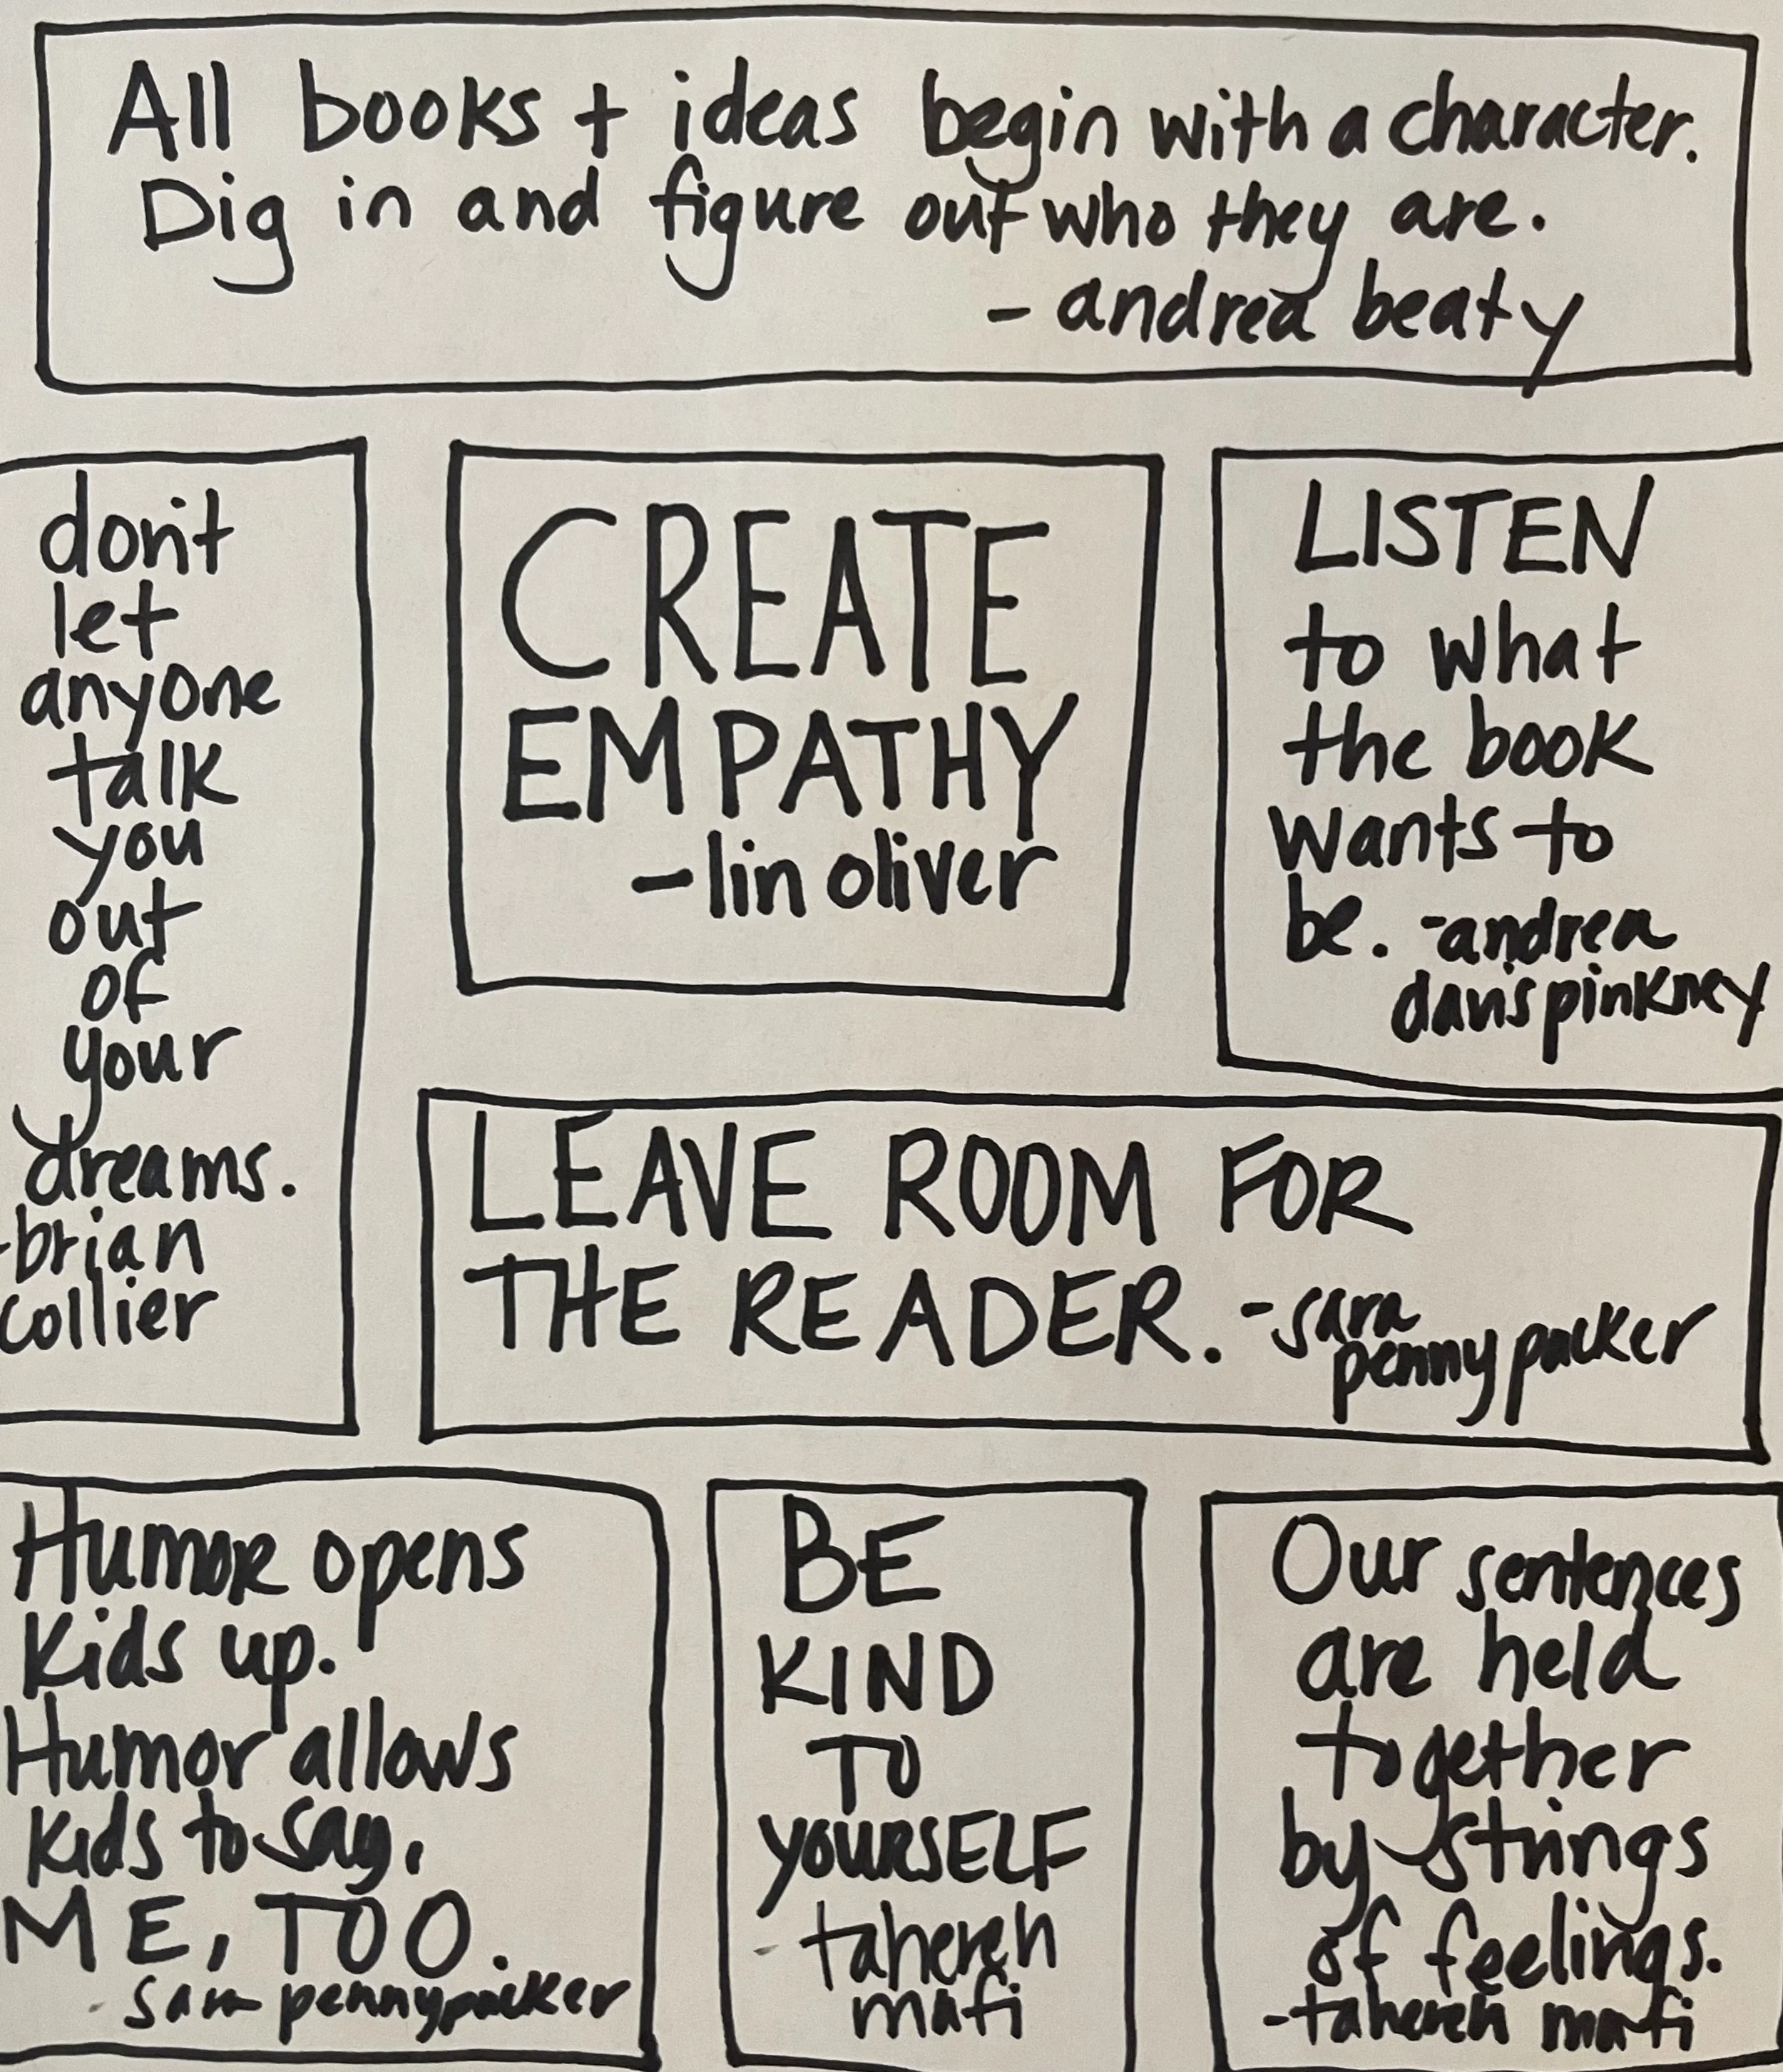 All books + ideas begin with a character.
Dig in and figure out who they are.
- andrea beaty
don't
let
anyone
talk
you
out
of
your
dreams.
-brian
collier
CREATE
EMPATHY
-lin oliver
LISTEN
to what
the book
wants to
be. -andrea
davis pinkney
LEAVE ROOM FOR
THE READER. -sara
pennypacker
Humor opens
kids up.
Humor allows
kids to say,
ME, TOO.
- sara pennypacker
BE
KIND
TO
YOURSELF
- tahereh
mafi
Our sentences
are held
together
by strings
of feelings.
-tahereh mafi